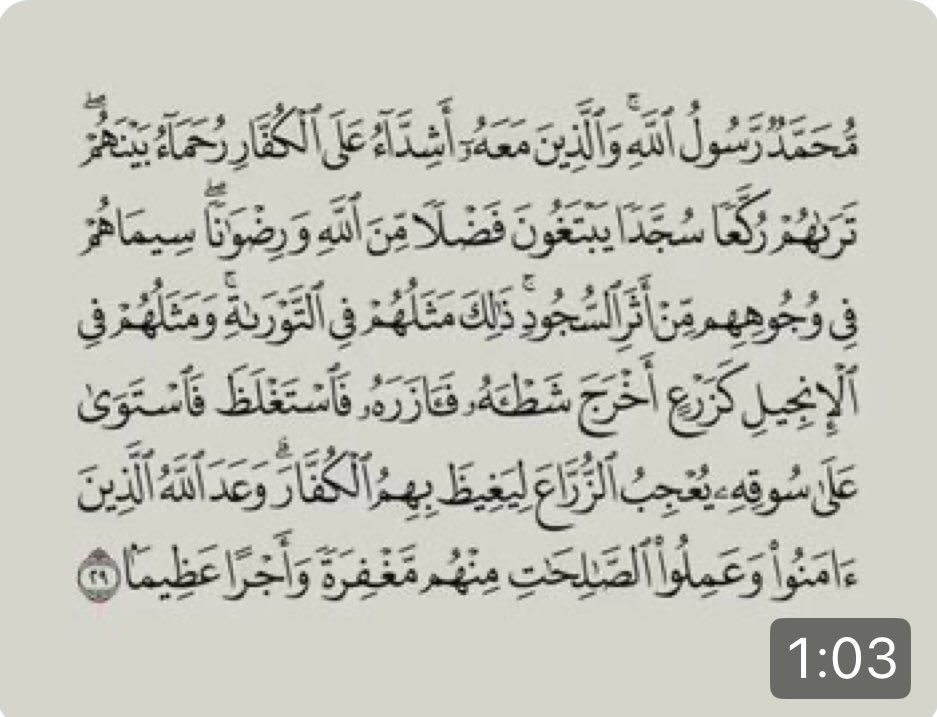 مُّحَمَّدٌ رَّسُولُ ٱللَّهِۚ وَٱلَّذِينَ مَعَهُۥٓ أَشِدَّآءُ عَلَى ٱلْكُفَّارِ رُحَمَآءُ بَيْنَهُمْۖ
تَرَىٰهُمْ رُكَّعًا سُجَّدًا يَبْتَغُونَ فَضْلًا مِّنَ ٱللَّهِ وَرِضْوَٰنًاۖ سِيمَاهُمْ
فِى وُجُوهِهِم مِّنْ أَثَرِ ٱلسُّجُودِۚ ذَٰلِكَ مَثَلُهُمْ فِى ٱلتَّوْرَىٰةِۚ وَمَثَلُهُمْ فِى
ٱلْإِنجِيلِ كَزَرْعٍ أَخْرَجَ شَطْـَٔهُۥ فَـَٔازَرَهُۥ فَٱسْتَغْلَظَ فَٱسْتَوَىٰ
عَلَىٰ سُوقِهِۦ يُعْجِبُ ٱلزُّرَّاعَ لِيَغِيظَ بِهِمُ ٱلْكُفَّارَۗ وَعَدَ ٱللَّهُ ٱلَّذِينَ
ءَامَنُوا۟ وَعَمِلُوا۟ ٱلصَّٰلِحَٰتِ مِنْهُم مَّغْفِرَةً وَأَجْرًا عَظِيمًۢا ٢٩
1:03